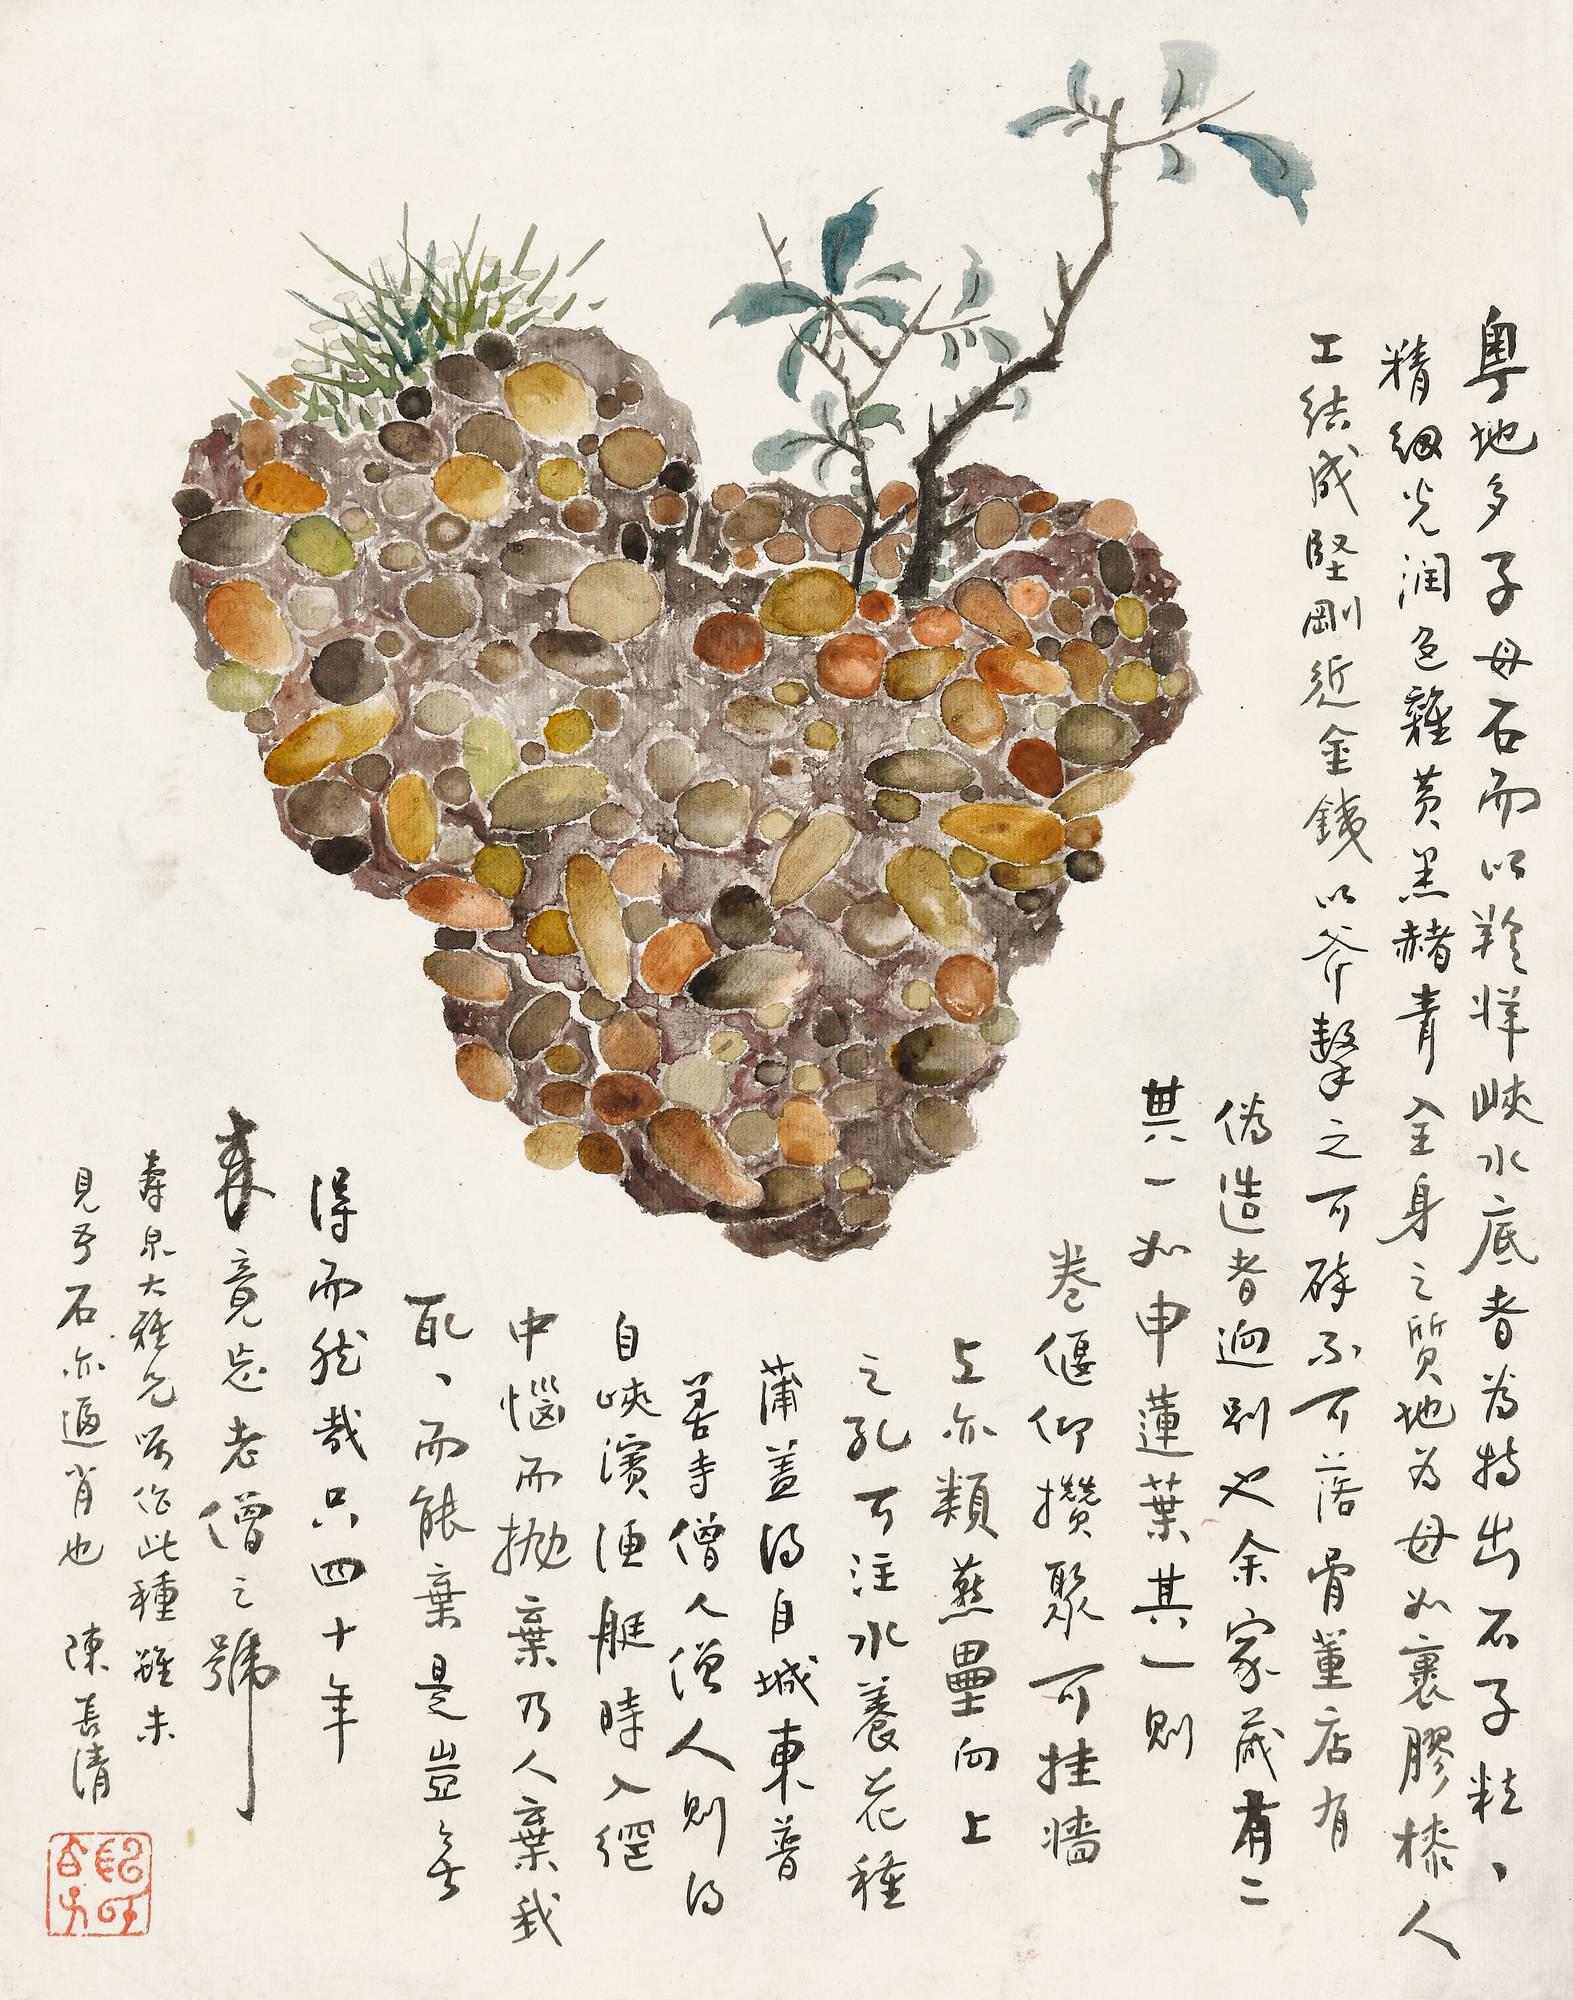 粤地多子母石而以羚羊峡水底者為特出石子粒、
精細光润色雜黄黑赭青全身之質地為母如裹膠漆人
工結成堅剛近金銕以斧擊之可碎不可落骨董店有
偽造者迥别也余家藏有二
其一如申蓮葉其一則
卷偃仰攢聚可挂牆
上亦類燕壘向上
之孔可注水養花種
蒲盖得自城東普
善寺僧人僧人則得
自峽濱漁艇時入網
中惱而抛棄乃人棄我
取、而能棄是豈無
得而然哉只四十年
来竟忘老僧之號
壽泉大雅兄嘱作此種雖未
見吾石亦逼肖也 陳長清